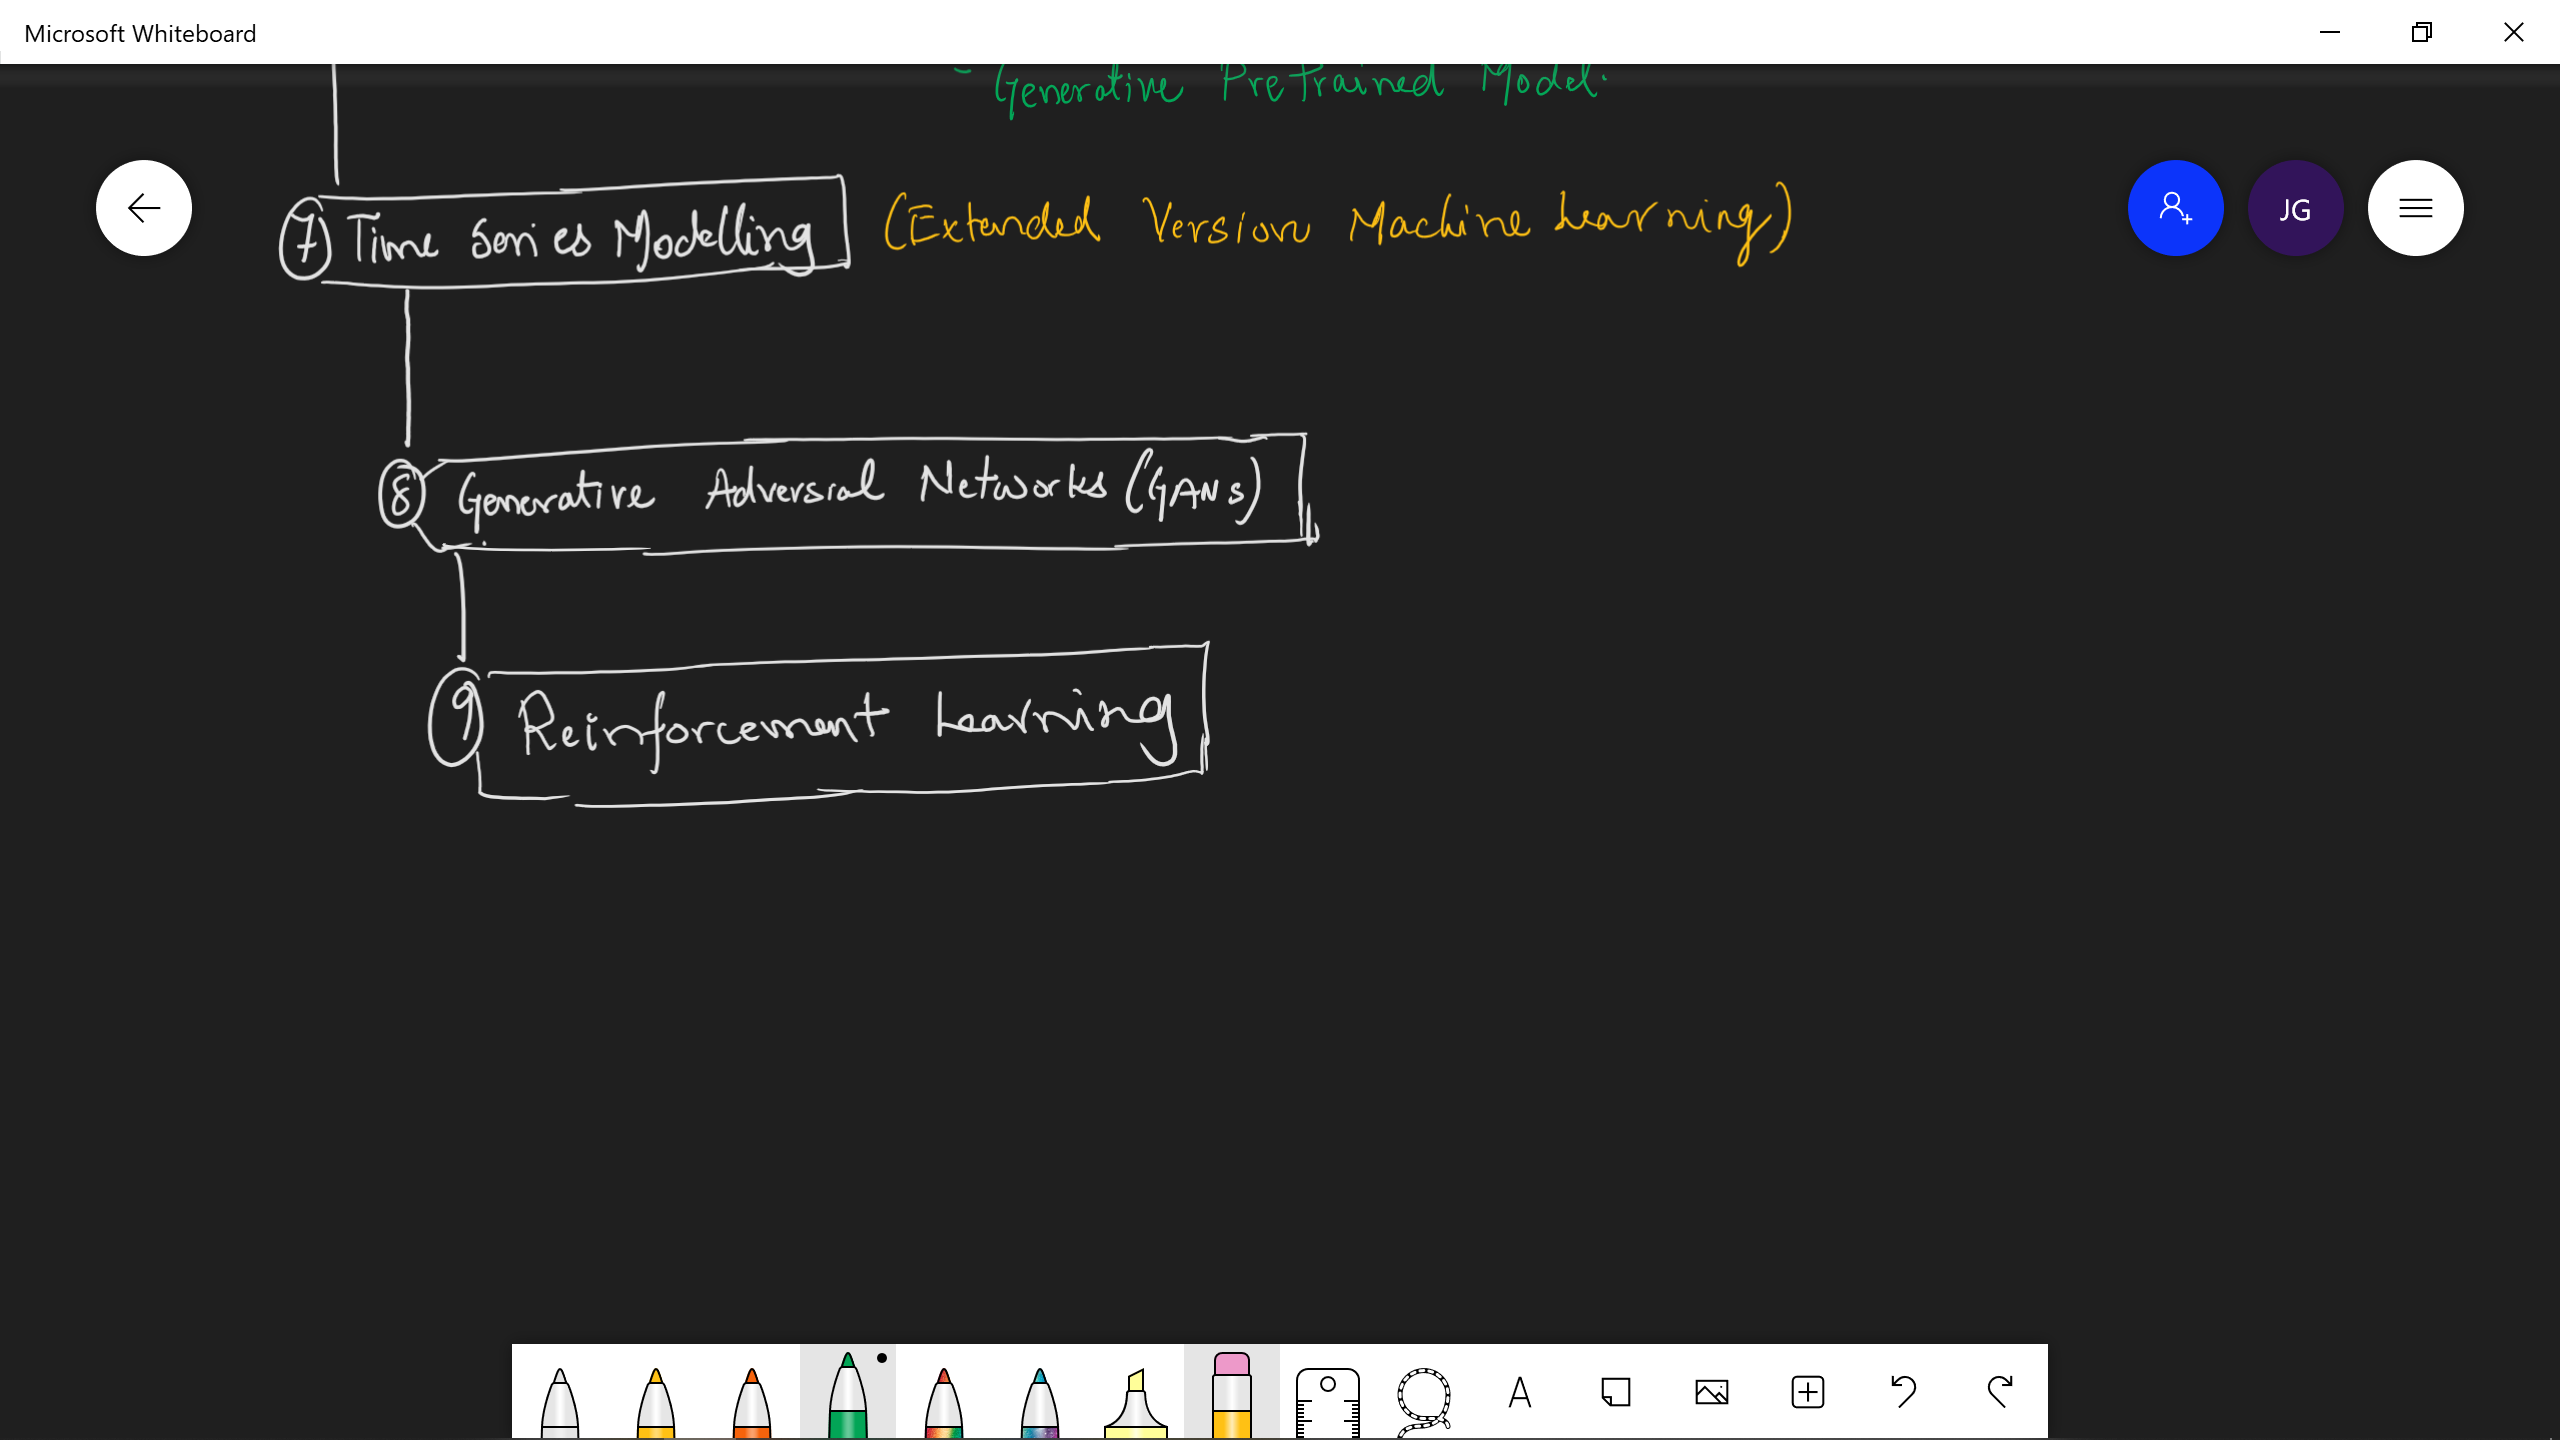 Microsoft Whiteboard
- Generative Pretrained Model.
7 Time Series Modelling (Extended Version Machine Learning)
JG
8 Generative Adversial Networks (GANs)
9 Reinforcement Learning